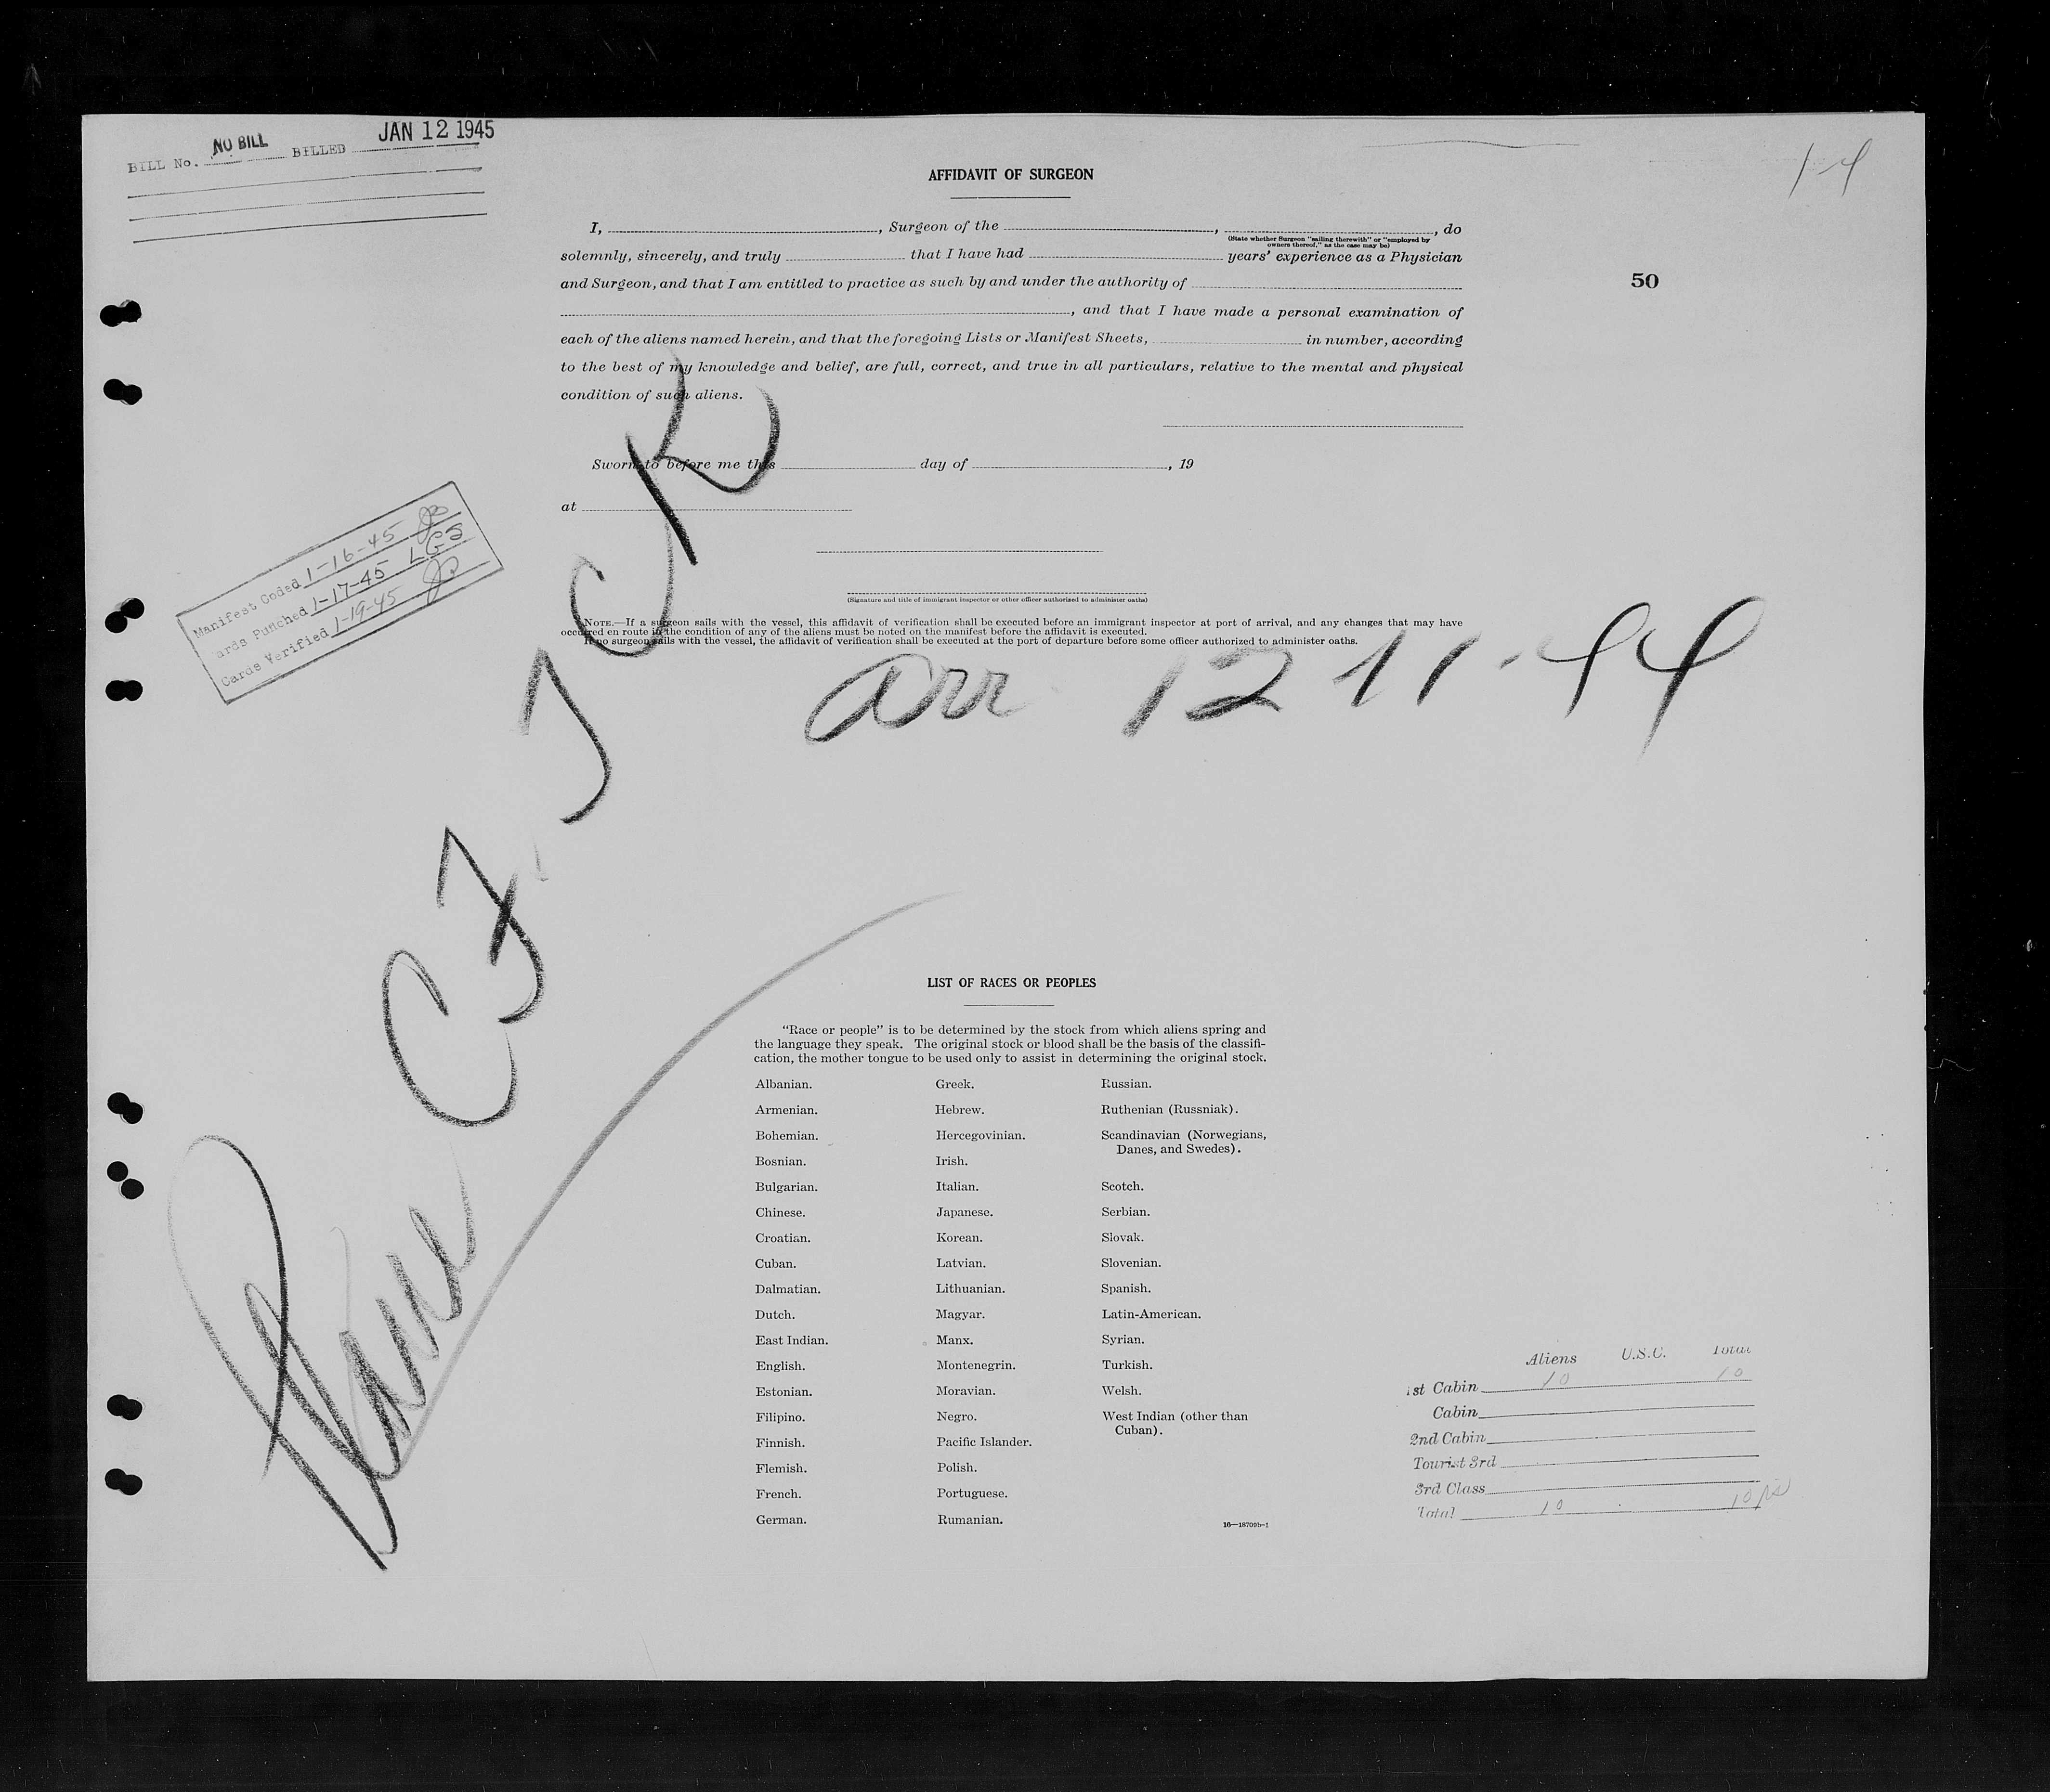 BILL No. NO BILL BILLED JAN 12 1945
1-4
AFFIDAVIT OF SURGEON
I, , Surgeon of the , , do
(State whether Surgeon "sailing therewith" or "employed by
owners thereof," as the case may be)
solemnly, sincerely, and truly that I have had years' experience as a Physician
and Surgeon, and that I am entitled to practice as such by and under the authority of
50
, and that I have made a personal examination of
each of the aliens named herein, and that the foregoing Lists or Manifest Sheets, in number, according
to the best of my knowledge and belief, are full, correct, and true in all particulars, relative to the mental and physical
condition of such aliens.
Sworn to before me this day of , 19
at
(Signature and title of immigrant inspector or other officer authorized to administer oaths)
NOTE.—If a surgeon sails with the vessel, this affidavit of verification shall be executed before an immigrant inspector at port of arrival, and any changes that may have
occurred en route in the condition of any of the aliens must be noted on the manifest before the affidavit is executed.
If no surgeon sails with the vessel, the affidavit of verification shall be executed at the port of departure before some officer authorized to administer oaths.
Manifest Coded 1-16-45
ards Punched 1-17-45 LGS
Cards Verified 1-19-45
arr 12 11-44
Plane CF. TCK
LIST OF RACES OR PEOPLES
"Race or people" is to be determined by the stock from which aliens spring and
the language they speak. The original stock or blood shall be the basis of the classifi-
cation, the mother tongue to be used only to assist in determining the original stock.
Albanian.
Armenian.
Bohemian.
Bosnian.
Bulgarian.
Chinese.
Croatian.
Cuban.
Dalmatian.
Dutch.
East Indian.
English.
Estonian.
Filipino.
Finnish.
Flemish.
French.
German.
Greek.
Hebrew.
Hercegovinian.
Irish.
Italian.
Japanese.
Korean.
Latvian.
Lithuanian.
Magyar.
Manx.
Montenegrin.
Moravian.
Negro.
Pacific Islander.
Polish.
Portuguese.
Rumanian.
Russian.
Ruthenian (Russniak).
Scandinavian (Norwegians,
Danes, and Swedes).
Scotch.
Serbian.
Slovak.
Slovenian.
Spanish.
Latin-American.
Syrian.
Turkish.
Welsh.
West Indian (other than
Cuban).
16—18709b-1
Aliens U.S.C. Total
1st Cabin 10 10
Cabin
2nd Cabin
Tourist 3rd
3rd Class
Total 10 10